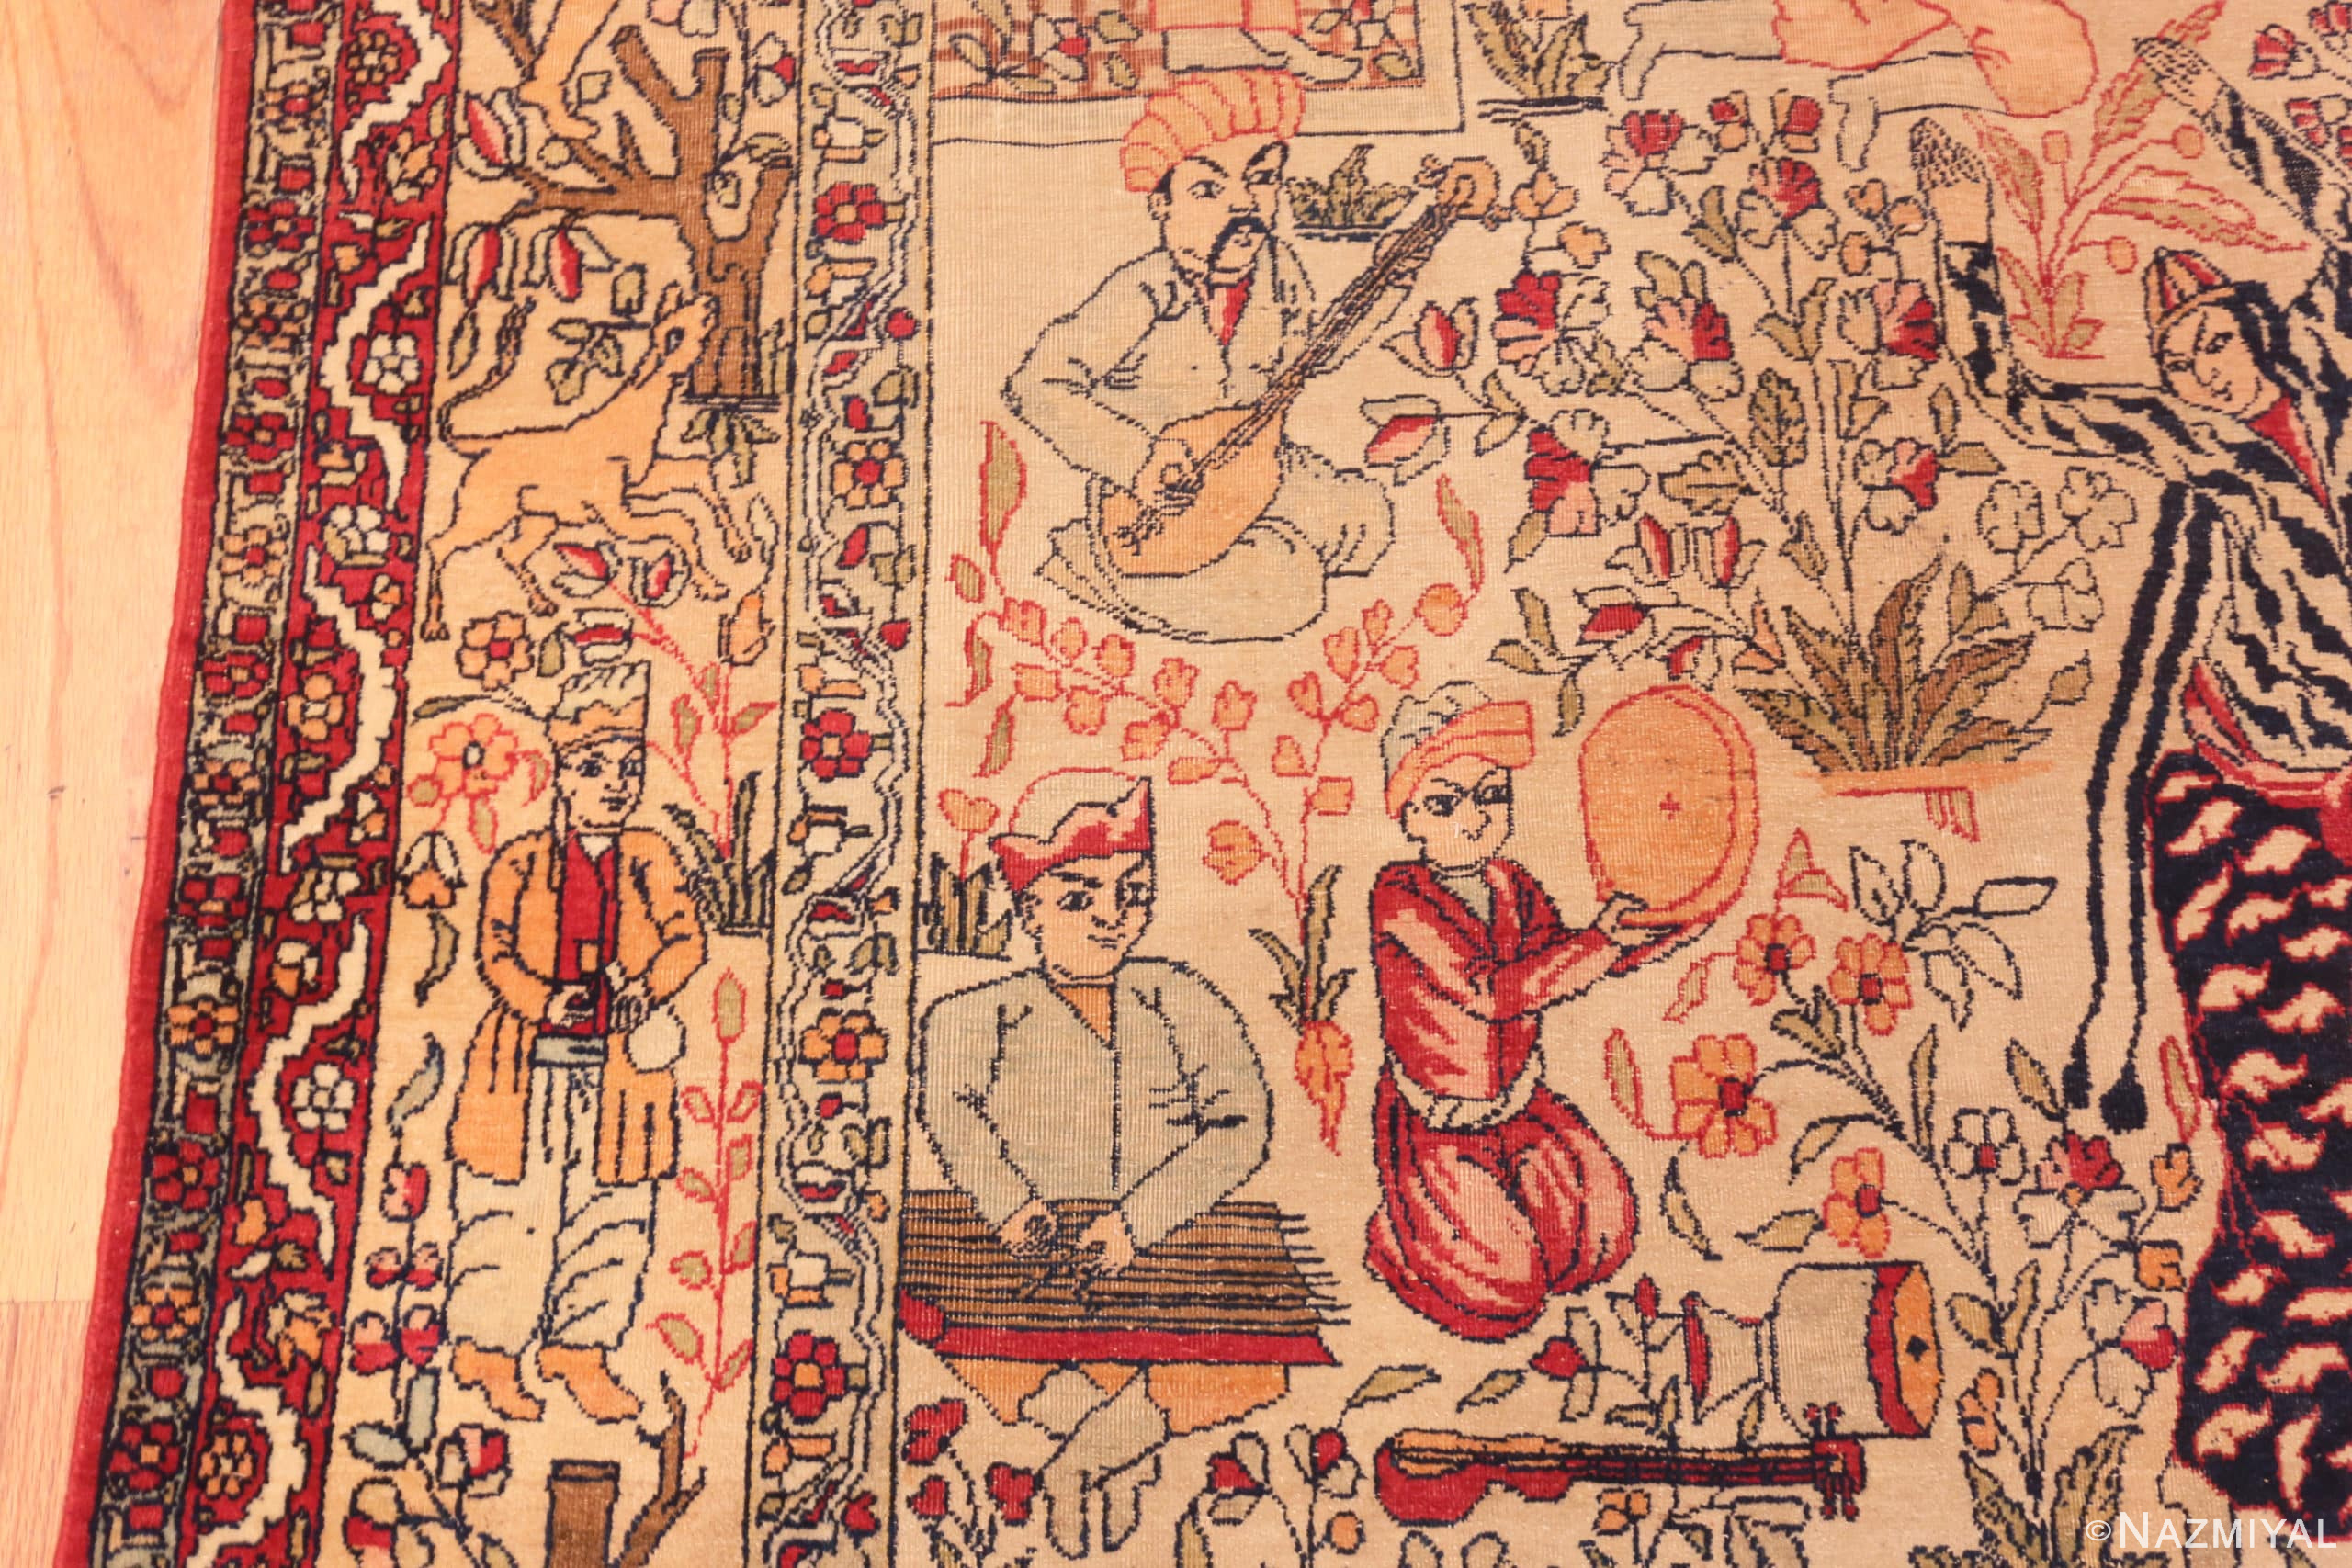 ©NAZMIYAL